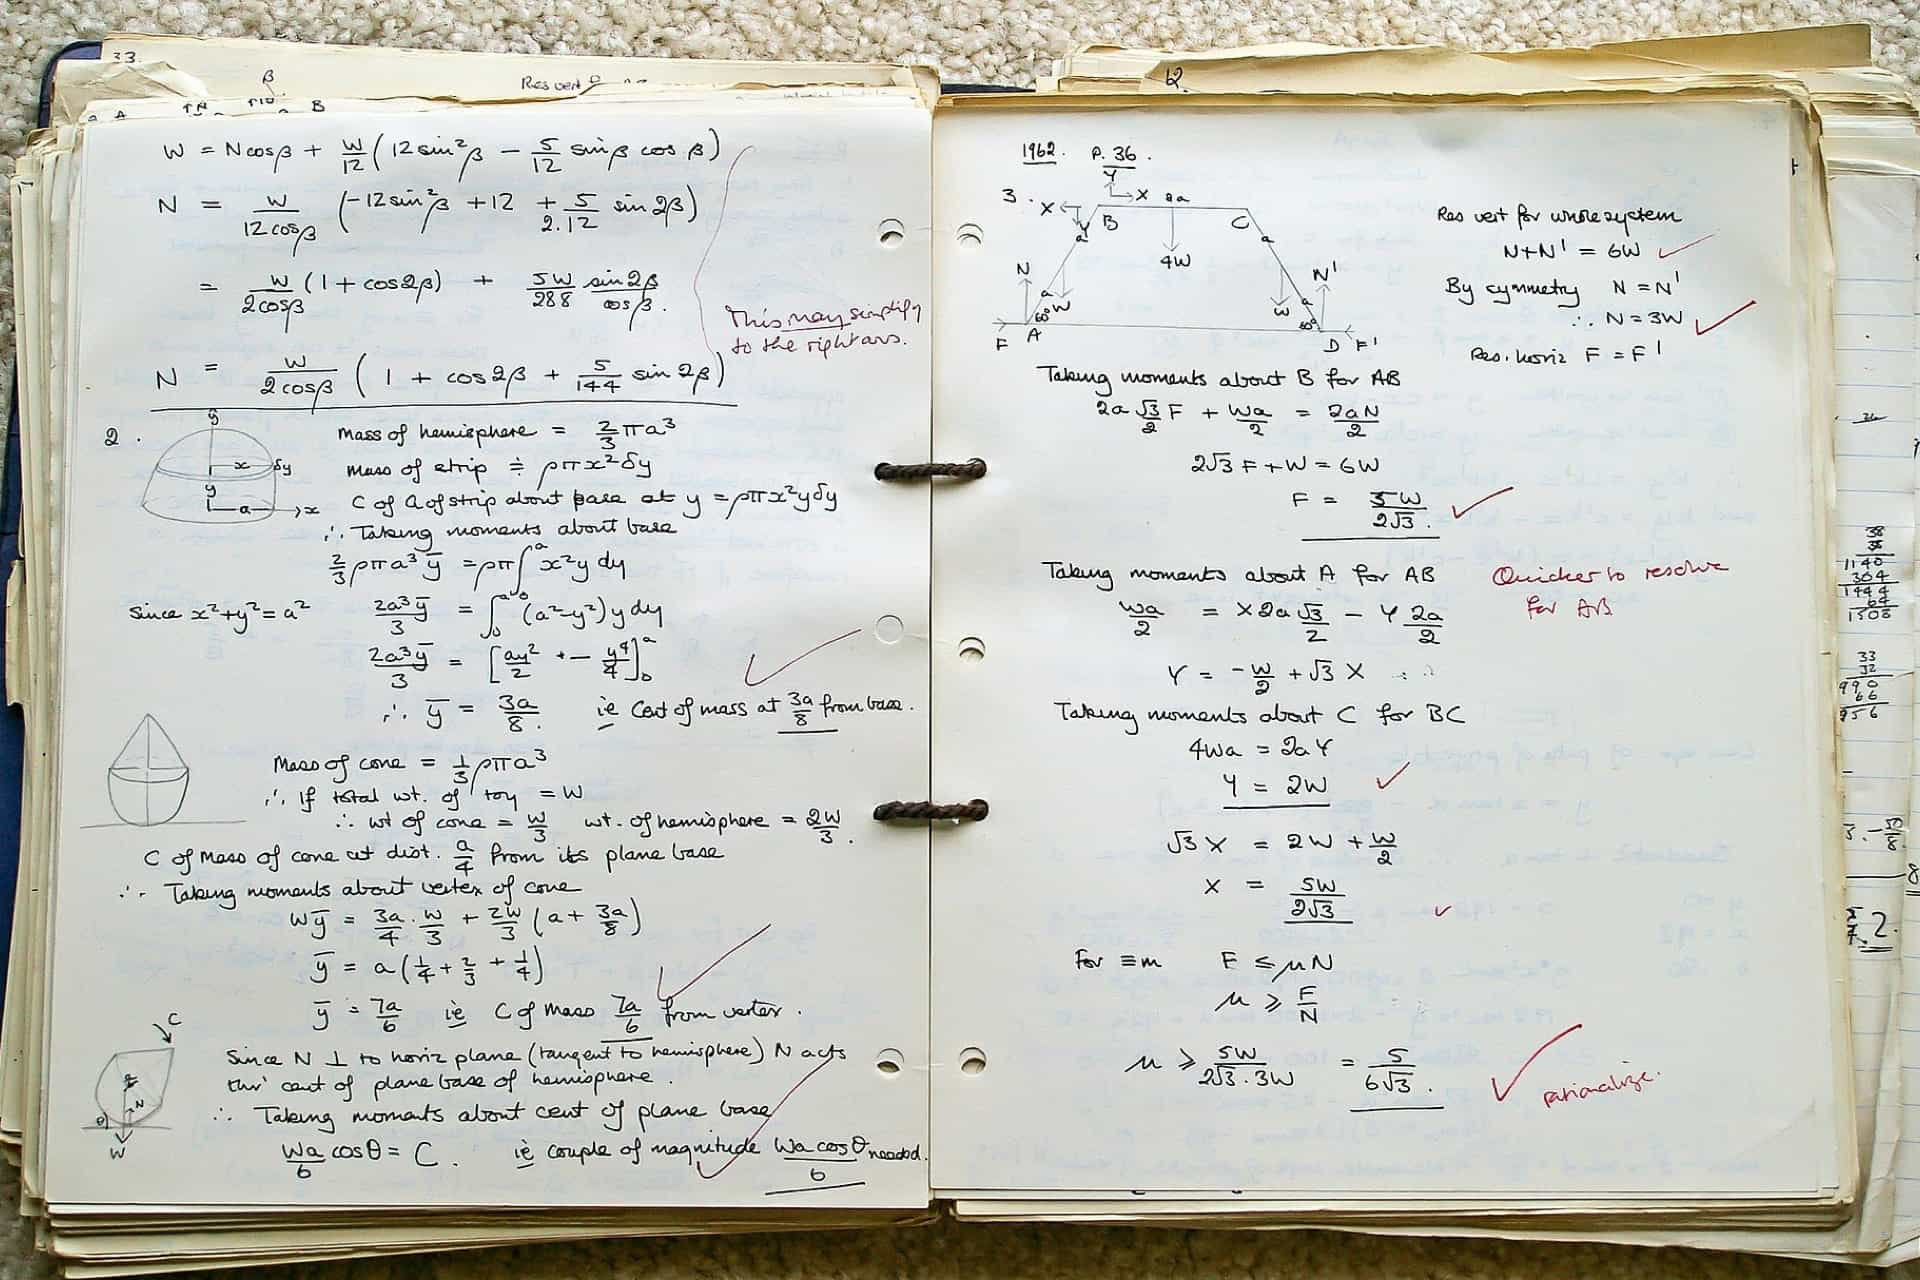 33.
β
Res vert
A
B
W = N cos β + W/12 (12 sin²β − 5/12 sin β cos β)
N = W/12cosβ (−12 sin²β + 12 + 5/2.12 sin 2β)
= W/2cosβ (1 + cos 2β) + 5W/288 sin2β/cosβ.
This may simplify
to the right ans.
N = W/2cosβ (1 + cos 2β + 5/144 sin 2β)
2.
y
x
δy
y
a
x
Mass of hemisphere = 2/3 πa³
mass of strip ≑ ρπx²δy
C of G of strip about base at y = ρπx²yδy
∴ Taking moments about base
2/3 ρπa³ȳ = ρπ∫₀ᵃ x²y dy
Since x²+y²=a² 2a³ȳ/3 = ∫₀ᵃ (a²−y²) y dy
2a³ȳ/3 = [ay²/2 − y⁴/4]₀ᵃ
∴ ȳ = 3a/8. ie Cent of mass at 3a/8 from base.
Mass of cone = 1/3 ρπa³
∴ If total wt. of toy = W
∴ wt of cone = W/3 wt. of hemisphere = 2W/3.
C of Mass of cone at dist. a/4 from its plane base
∴ Taking moments about vertex of cone
Wȳ = 3a/4 . W/3 + 2W/3 (a + 3a/8)
ȳ = a(1/4 + 2/3 + 1/4)
ȳ = 7a/6 ie C of Mass 7a/6 from vertex.
C
N
θ
W
Since N ⊥ to horiz plane (tangent to hemisphere) N acts
thr' cent of plane base of hemisphere.
∴ Taking moments about cent of plane base
Wa/6 cosθ = C. ie couple of magnitude Wa cosθ/6 needed.
12.
1962. P. 36.
3.
Y
X
X
2a
B
C
Y
a
a
4W
N
N'
a
W
W
a
60°
60°
F
A
D
F'
Res vert for whole system
N+N' = 6W
By symmetry N = N'
∴ N = 3W
Res. horiz F = F'
Taking moments about B for AB
2a √3/2 F + Wa/2 = 2aN/2
2√3 F + W = 6W
F = 5W/2√3.
Taking moments about A for AB
Quicker to resolve
for AB
Wa/2 = X 2a √3/2 − Y 2a/2
Y = −W/2 + √3 X
Taking moments about C for BC
4Wa = 2aY
Y = 2W
√3 X = 2W + W/2
X = 5W/2√3
For ≡m F ≤ μN
μ ≥ F/N
μ ≥ 5W/2√3.3W = 5/6√3.
rationalize.
38
38
1140
304
1444
64
1508
33
32
990
66
956